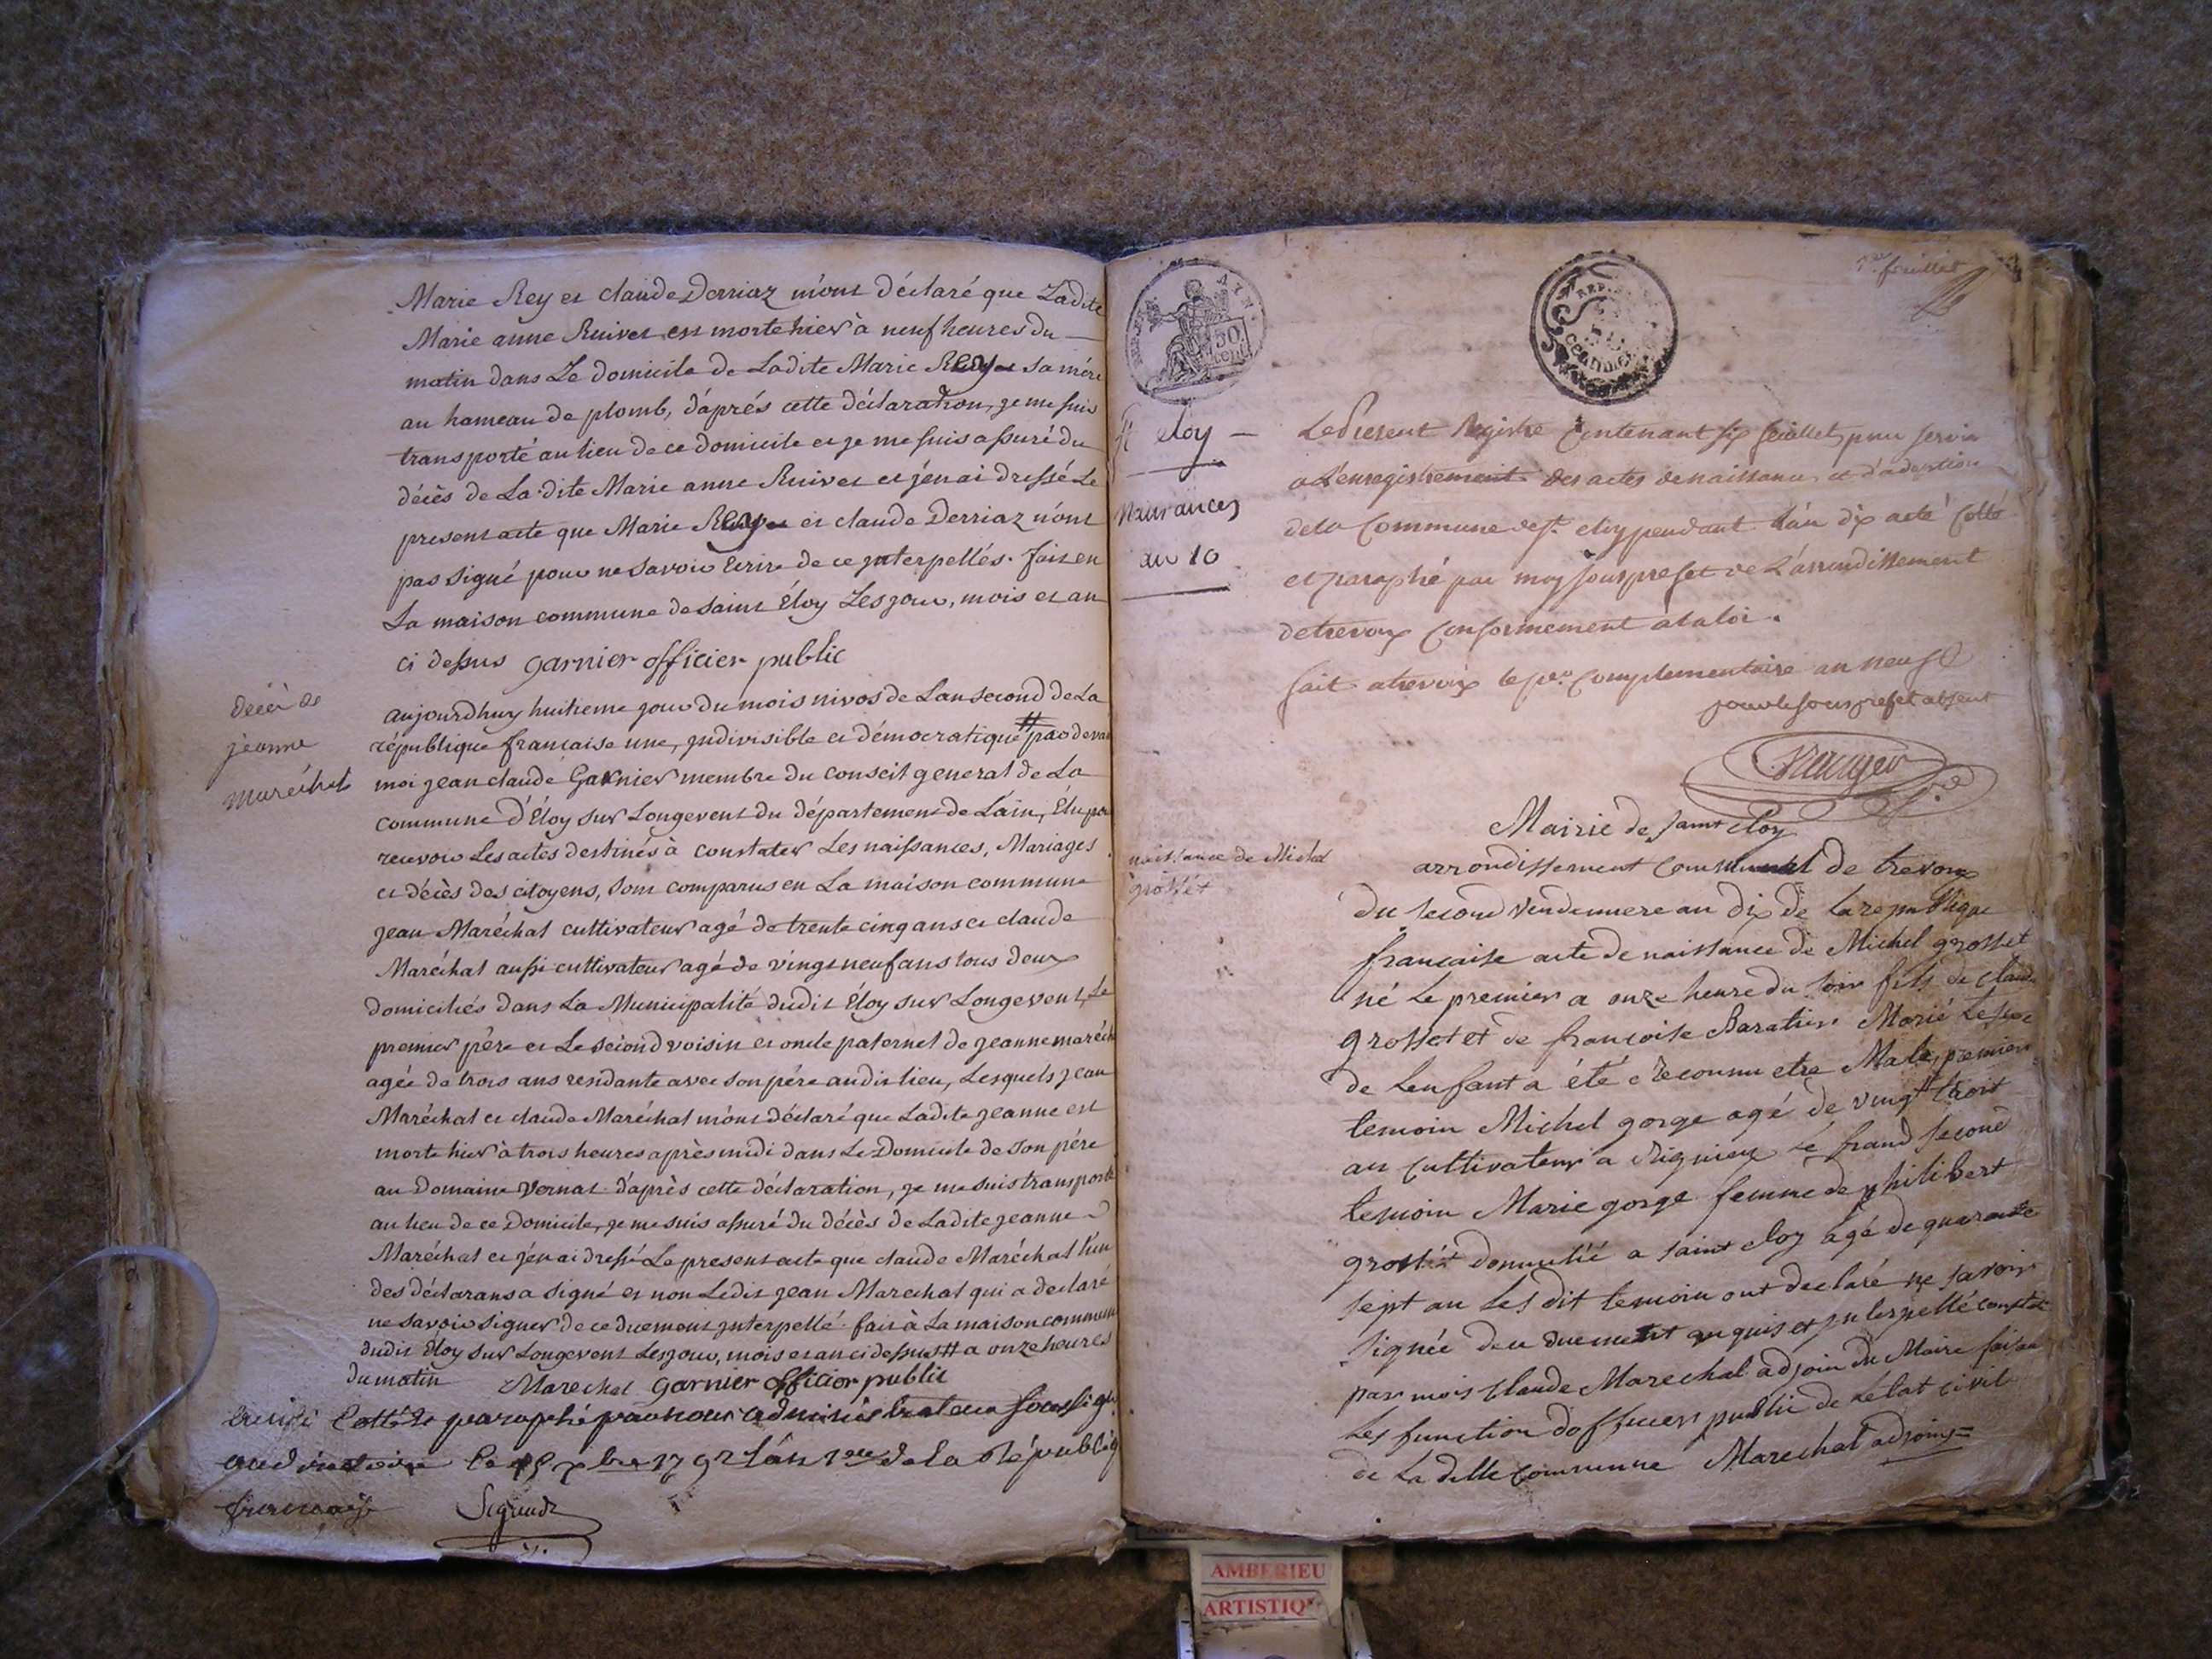 Marie Rey et claude Derriaz m'ont déclaré que Ladite
Marie anne Ruivet est morte hier à neuf heures du
matin dans Le domicile de Ladite Marie Rey sa mére
au hameau de plomb, d'aprés cette déclaration, je me suis
transporté au lieu de ce domicile et je me suis assuré du
décès de La dite Marie anne Ruivet et j'en ai dressé Le
present acte que Marie Rey et claude Derriaz n'ont
pas signé pour ne savoir Ecrire de ce jnterpellés. fait en
La maison commune de saint Éloy Les jour, mois et an
ci dessus garnier officier public
décè de
jeanne
maréchal
aujourdhuy huitieme jour du mois nivos de Lan second de La
république francaise une, jndivisible et démocratique # par devan
moi jean claude Garnier membre du conseil general de La
commune d'Éloy sur Longevent du département de Lain, Élu pou
recevoir Les actes destinés à constater Les naissances, Mariages
et décès des citoyens, sont comparus en La maison commune
jean Maréchal cultivateur agé de trente cinq ans et claude
Maréchal aussi cultivateur agé de vingt neuf ans tous deux
domiciliés dans La Municipalité dudit Éloy sur Longevent, Le
premier pére et Le second voisin et oncle paternel de jeanne maréch
agée de trois ans residante avec son pére audit lieu, Lesquels jean
Maréchal et claude Maréchal m'ont déclaré que Ladite jeanne est
morte hier à trois heures après midi dans Le Domicile de son pére
au Domaine Vernat. d'après cette déclaration, je me suis transporté
au lieu de ce Domicile, je me suis assuré du décès de Ladite jeanne
Maréchal et j'en ai dressé Le present acte que claude Maréchal l'un
des déclarans a signé et non Ledit jean Marechal qui a declaré
ne savoir signer de ce duement jnterpellé. fait à La maison commune
dudit Éloy sur Longevent Les jour, mois et an ci dessus # a onze heures
du matin Marechal garnier officier public
Cotté et paraphé par nous administrateur soussigné
au directoire le 15 xbre 1792 l'an 1er de la République
francaise
1er feuillet
REP. FRA.
AIN
50
cent.
St eloy
Naissances
an 10
Le Present Registre Contenant six feuillets pour servir
a L'enregistrement des actes de naissance et d'adoption
de la Commune de St. eloy pendant L'an dix a eté Cotté
et paraphé par moy sous prefet de L'arrondissement
de trevoux conformement à la loi.
fait a trevoux le per. Complementaire an neuf
pour le sous prefet absent
Mairie de saint eloy
naissance de Michel
grosset
arrondissement Communal de trevoux
du second vendemiere an dix de La republique
francaise acte de naissance de Michel grosset
né Le premier a onze heure du soir fils de claude
grosset et de francoise Baratier Marié Le sexe
de Lenfant a été reconnu etre Male premier
temoin Michel gorge agé de vingt trois
an cultivateur a Rignieux le frand second
temoin Marie gorge femme de philibert
grosset domicilié a saint eloy agé de quarante
sept an Les dit temoin ont declaré ne savoir
signée de ce duement requis et jnterpellé
par mois Claude Marechal adjoin du Maire faisan
Les function dofficier public de l'état civil
de La ditte commune Marechal adjoing
AMBERIEU
ARTISTIQ